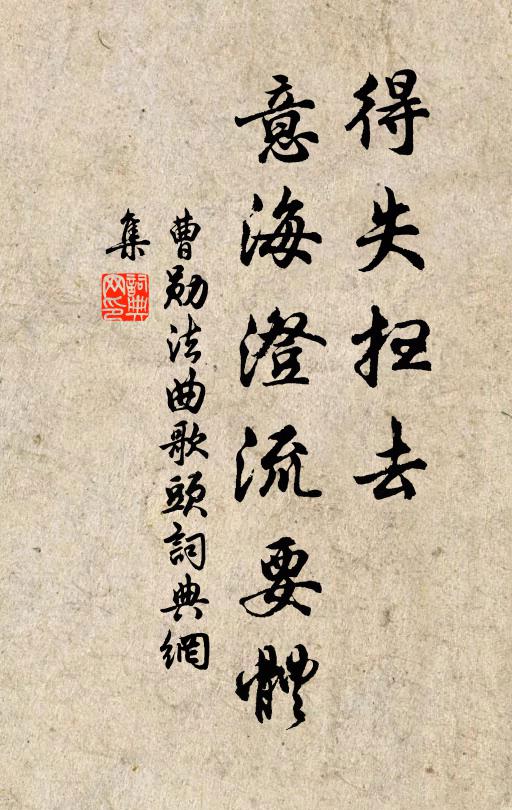 得失扫去
意海澄流要體
曹勛法曲歌頭詞典網
集
詞典网印